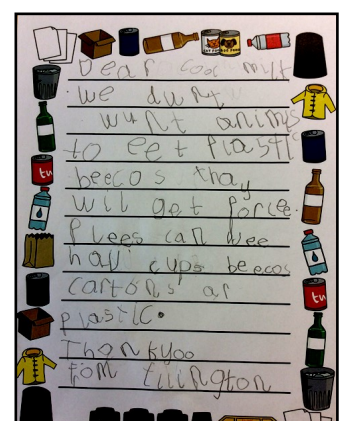 Dear cool milk
we dunt
wunt animls
to eet plastic
beecos thay
wil get porlee.
Plees can wee
hav cups beecos
cartons ar
plastic.
Thankyoo
fom tilington